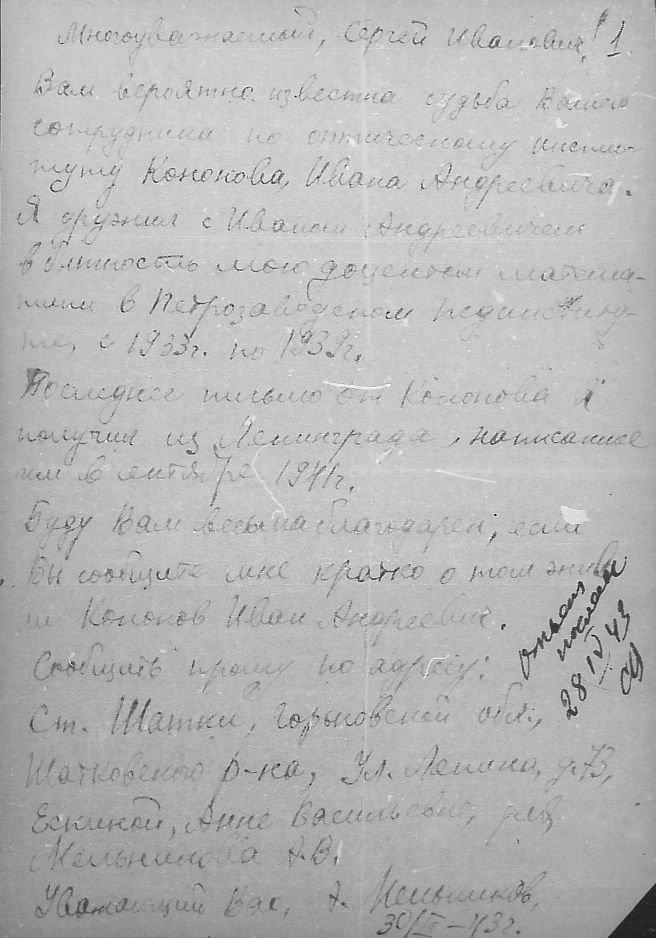 Многоуважаемый, Сергей Иванович! 1.
Вам вероятно известна судьба Вашего
сотрудника по оптическому инсти-
туту Кононова, Ивана Андреевича.
Я дружил с Иваном Андреевичем
в бытность мою доцентом матема-
тики в Петрозаводском пединститу-
те, с 1933г. по 1939г.
Последнее письмо от Кононова я
получил из Ленинграда, написанное
им в сентябре 1941г.
Буду Вам весьма благодарен, если
Вы сообщите мне кратко о том жив
ли Кононов Иван Андреевич.
Сообщить прошу по адресу:
ст. Шатки, Горьковской обл.,
Шатковского р-на, Ул. Ленина, д. 73,
Ескиной, Анне Васильевне, для
Мельникова А.В.
Уважающий Вас, А. Мельников,
30/III-43г.
Ответ
послан
28 IV 43